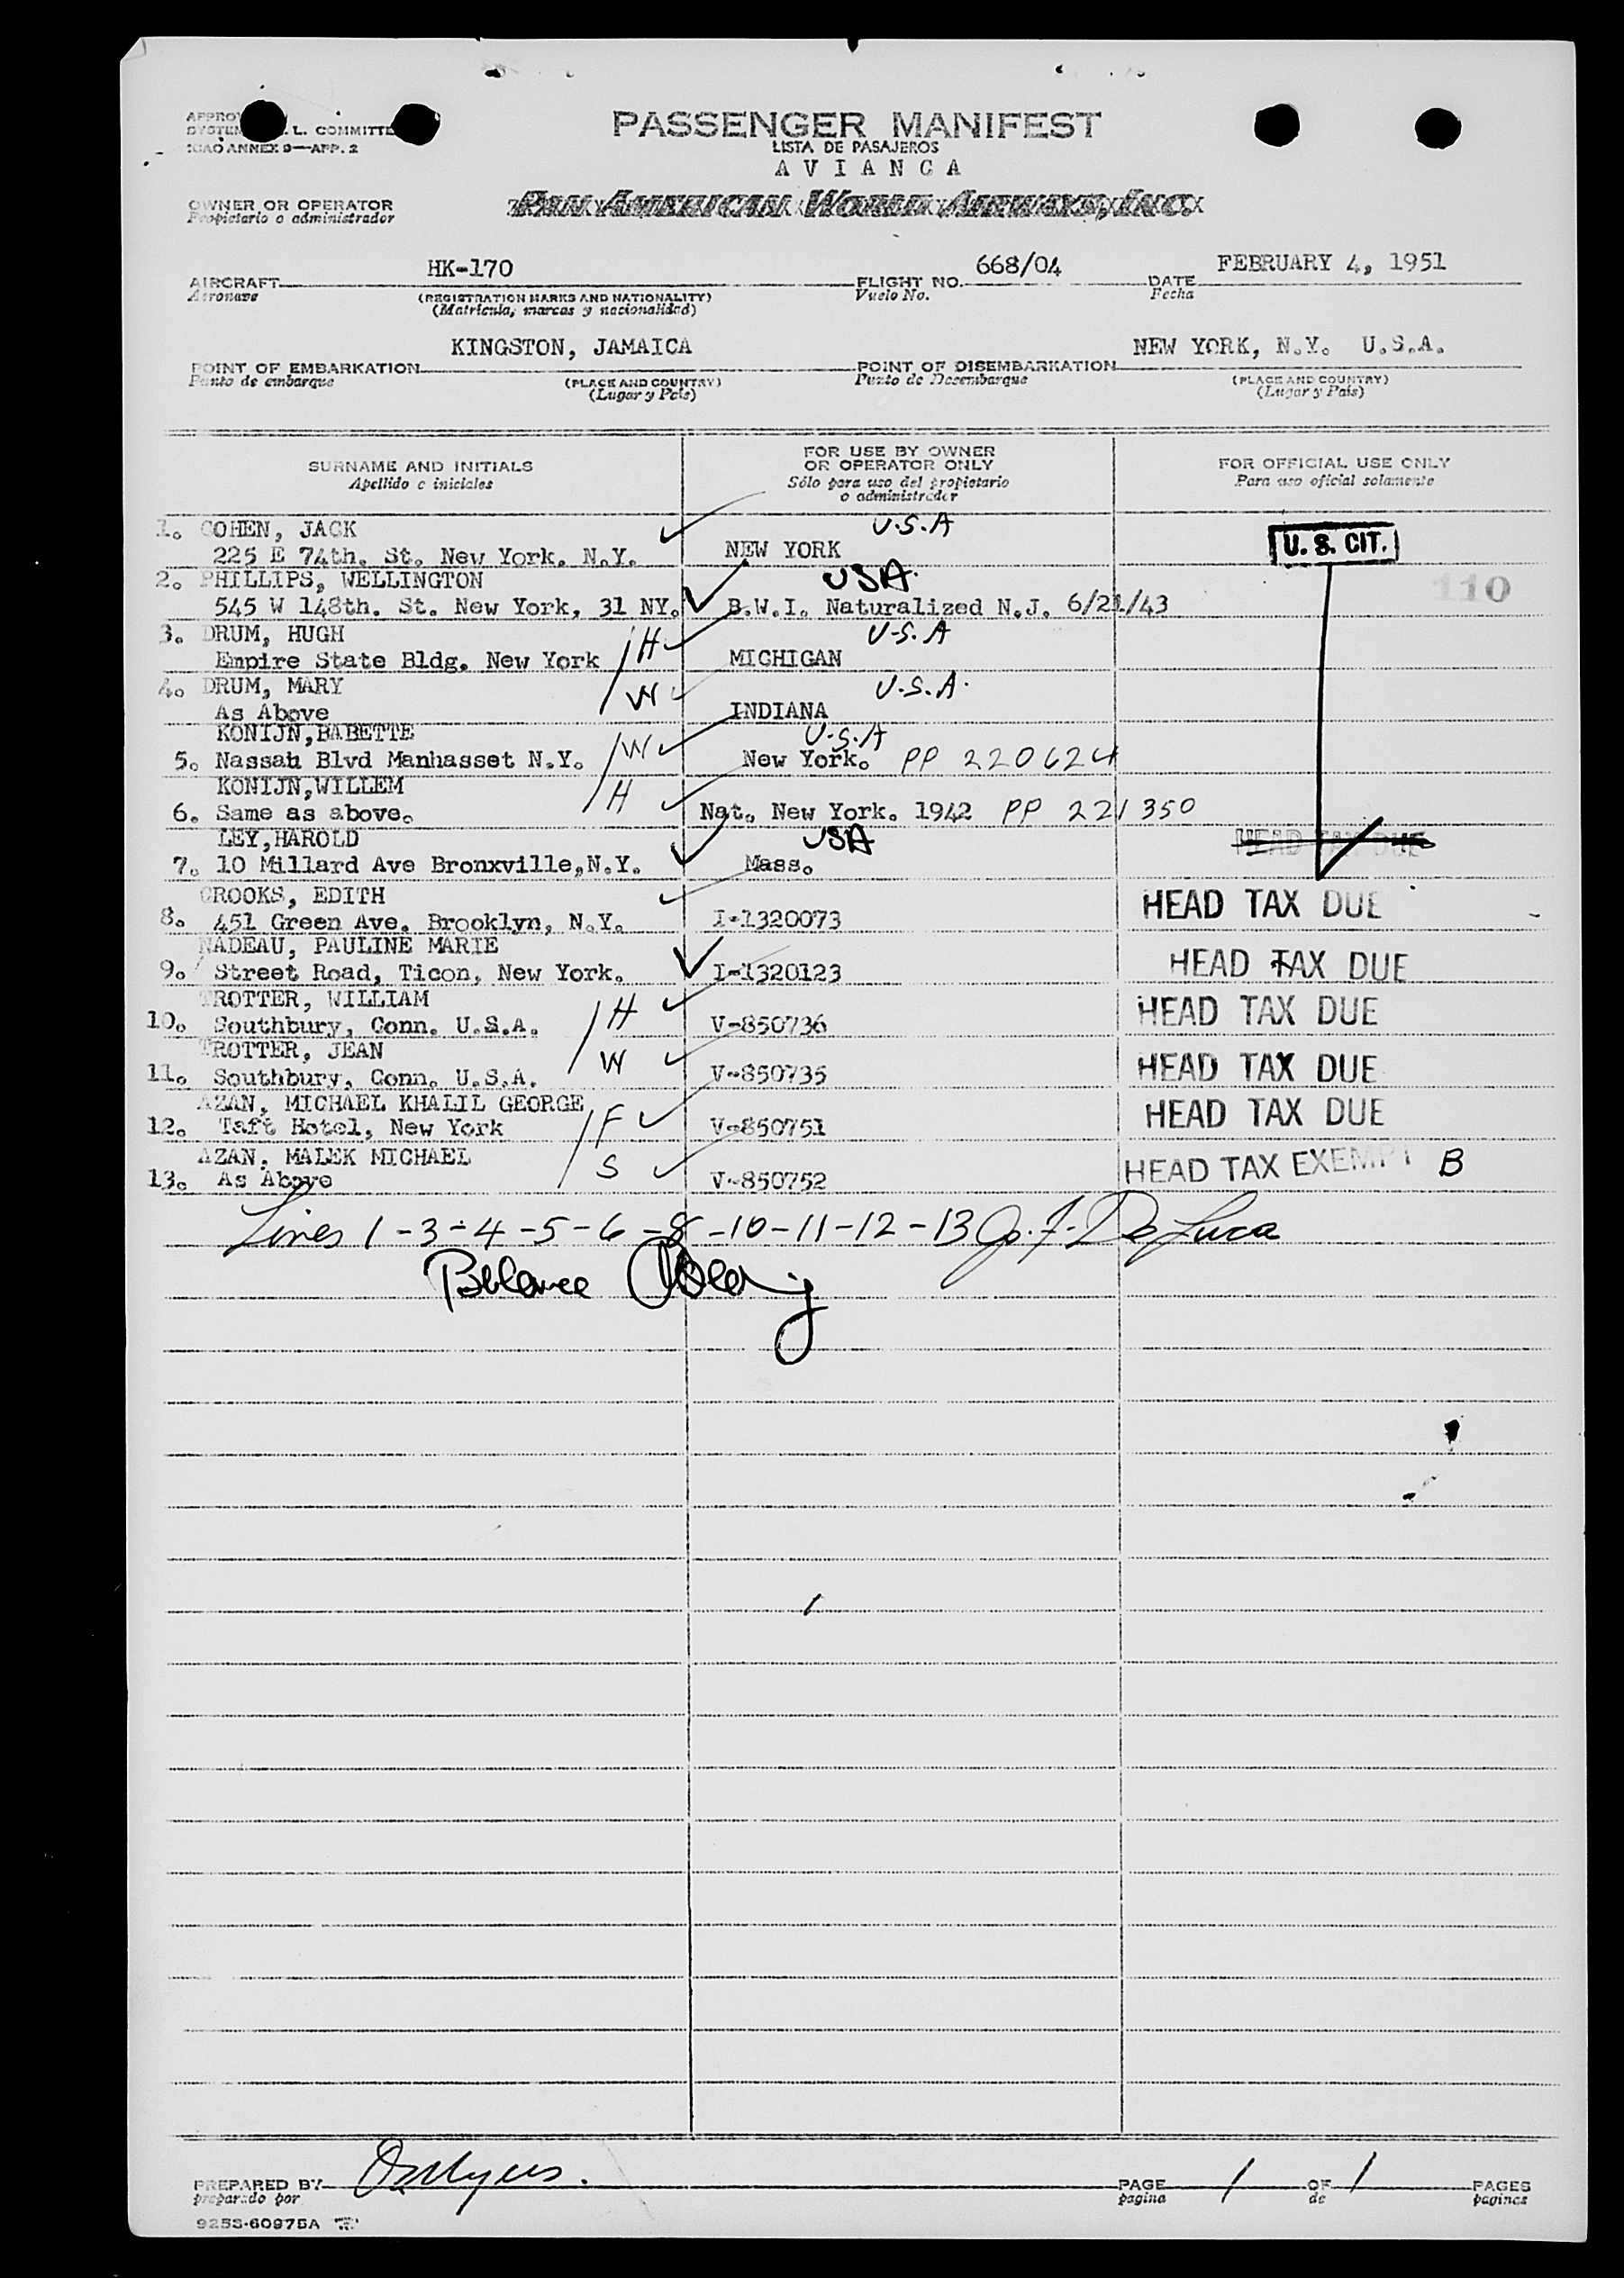 PASSENGER MANIFEST
LISTA DE PASAJEROS
L. COMMITTE
ICAO ANNEX 9—APP. 2
AVIANCA
OWNER OR OPERATOR
Propietario o administrador
PAN AMERICAN WORLD AIRWAYS, INC.
AIRCRAFT HK-170 FLIGHT NO. 668/04 DATE FEBRUARY 4, 1951
Aeronave (REGISTRATION MARKS AND NATIONALITY) Vuelo No. Fecha
(Matricula, marcas y nacionalidad)
POINT OF EMBARKATION KINGSTON, JAMAICA POINT OF DISEMBARKATION NEW YORK, N.Y. U.S.A.
Punto de embarque (PLACE AND COUNTRY) Punto de Desembarque (PLACE AND COUNTRY)
(Lugar y País) (Lugar y País)
SURNAME AND INITIALS
Apellido e iniciales
FOR USE BY OWNER
OR OPERATOR ONLY
Sólo para uso del propietario
o administrador
FOR OFFICIAL USE ONLY
Para uso oficial solamente
1. COHEN, JACK U.S.A
225 E 74th. St. New York. N.Y. NEW YORK U. S. CIT.
2. PHILLIPS, WELLINGTON USA.
545 W 148th. St. New York, 31 NY. B.W.I. Naturalized N.J. 6/21/43 110
3. DRUM, HUGH H U.S.A
Empire State Bldg. New York MICHIGAN
4. DRUM, MARY W U.S.A.
As Above INDIANA
KONIJN,BABETTE W U.S.A
5. Nassau Blvd Manhasset N.Y. New York. PP 220624
KONIJN,WILLEM H
6. Same as above. Nat. New York. 1942 PP 221350
LEY,HAROLD USA
7. 10 Millard Ave Bronxville,N.Y. Mass. HEAD TAX DUE
CROOKS, EDITH
8. 451 Green Ave. Brooklyn, N.Y. I-1320073 HEAD TAX DUE
NADEAU, PAULINE MARIE
9. Street Road, Ticon, New York. I-1320123 HEAD TAX DUE
TROTTER, WILLIAM H
10. Southbury, Conn. U.S.A. V-850736 HEAD TAX DUE
TROTTER, JEAN W
11. Southbury, Conn. U.S.A. V-850735 HEAD TAX DUE
AZAN, MICHAEL KHALIL GEORGE F
12. Taft Hotel, New York V-850751 HEAD TAX DUE
AZAN, MALEK MICHAEL S
13. As Above V-850752 HEAD TAX EXEMPT B
Lines 1-3-4-5-6-8-10-11-12-13 Jo. F. De Luca
Balance
PREPARED BY PAGE 1 OF 1 PAGES
preparado por pagina de paginas
9253-60975A